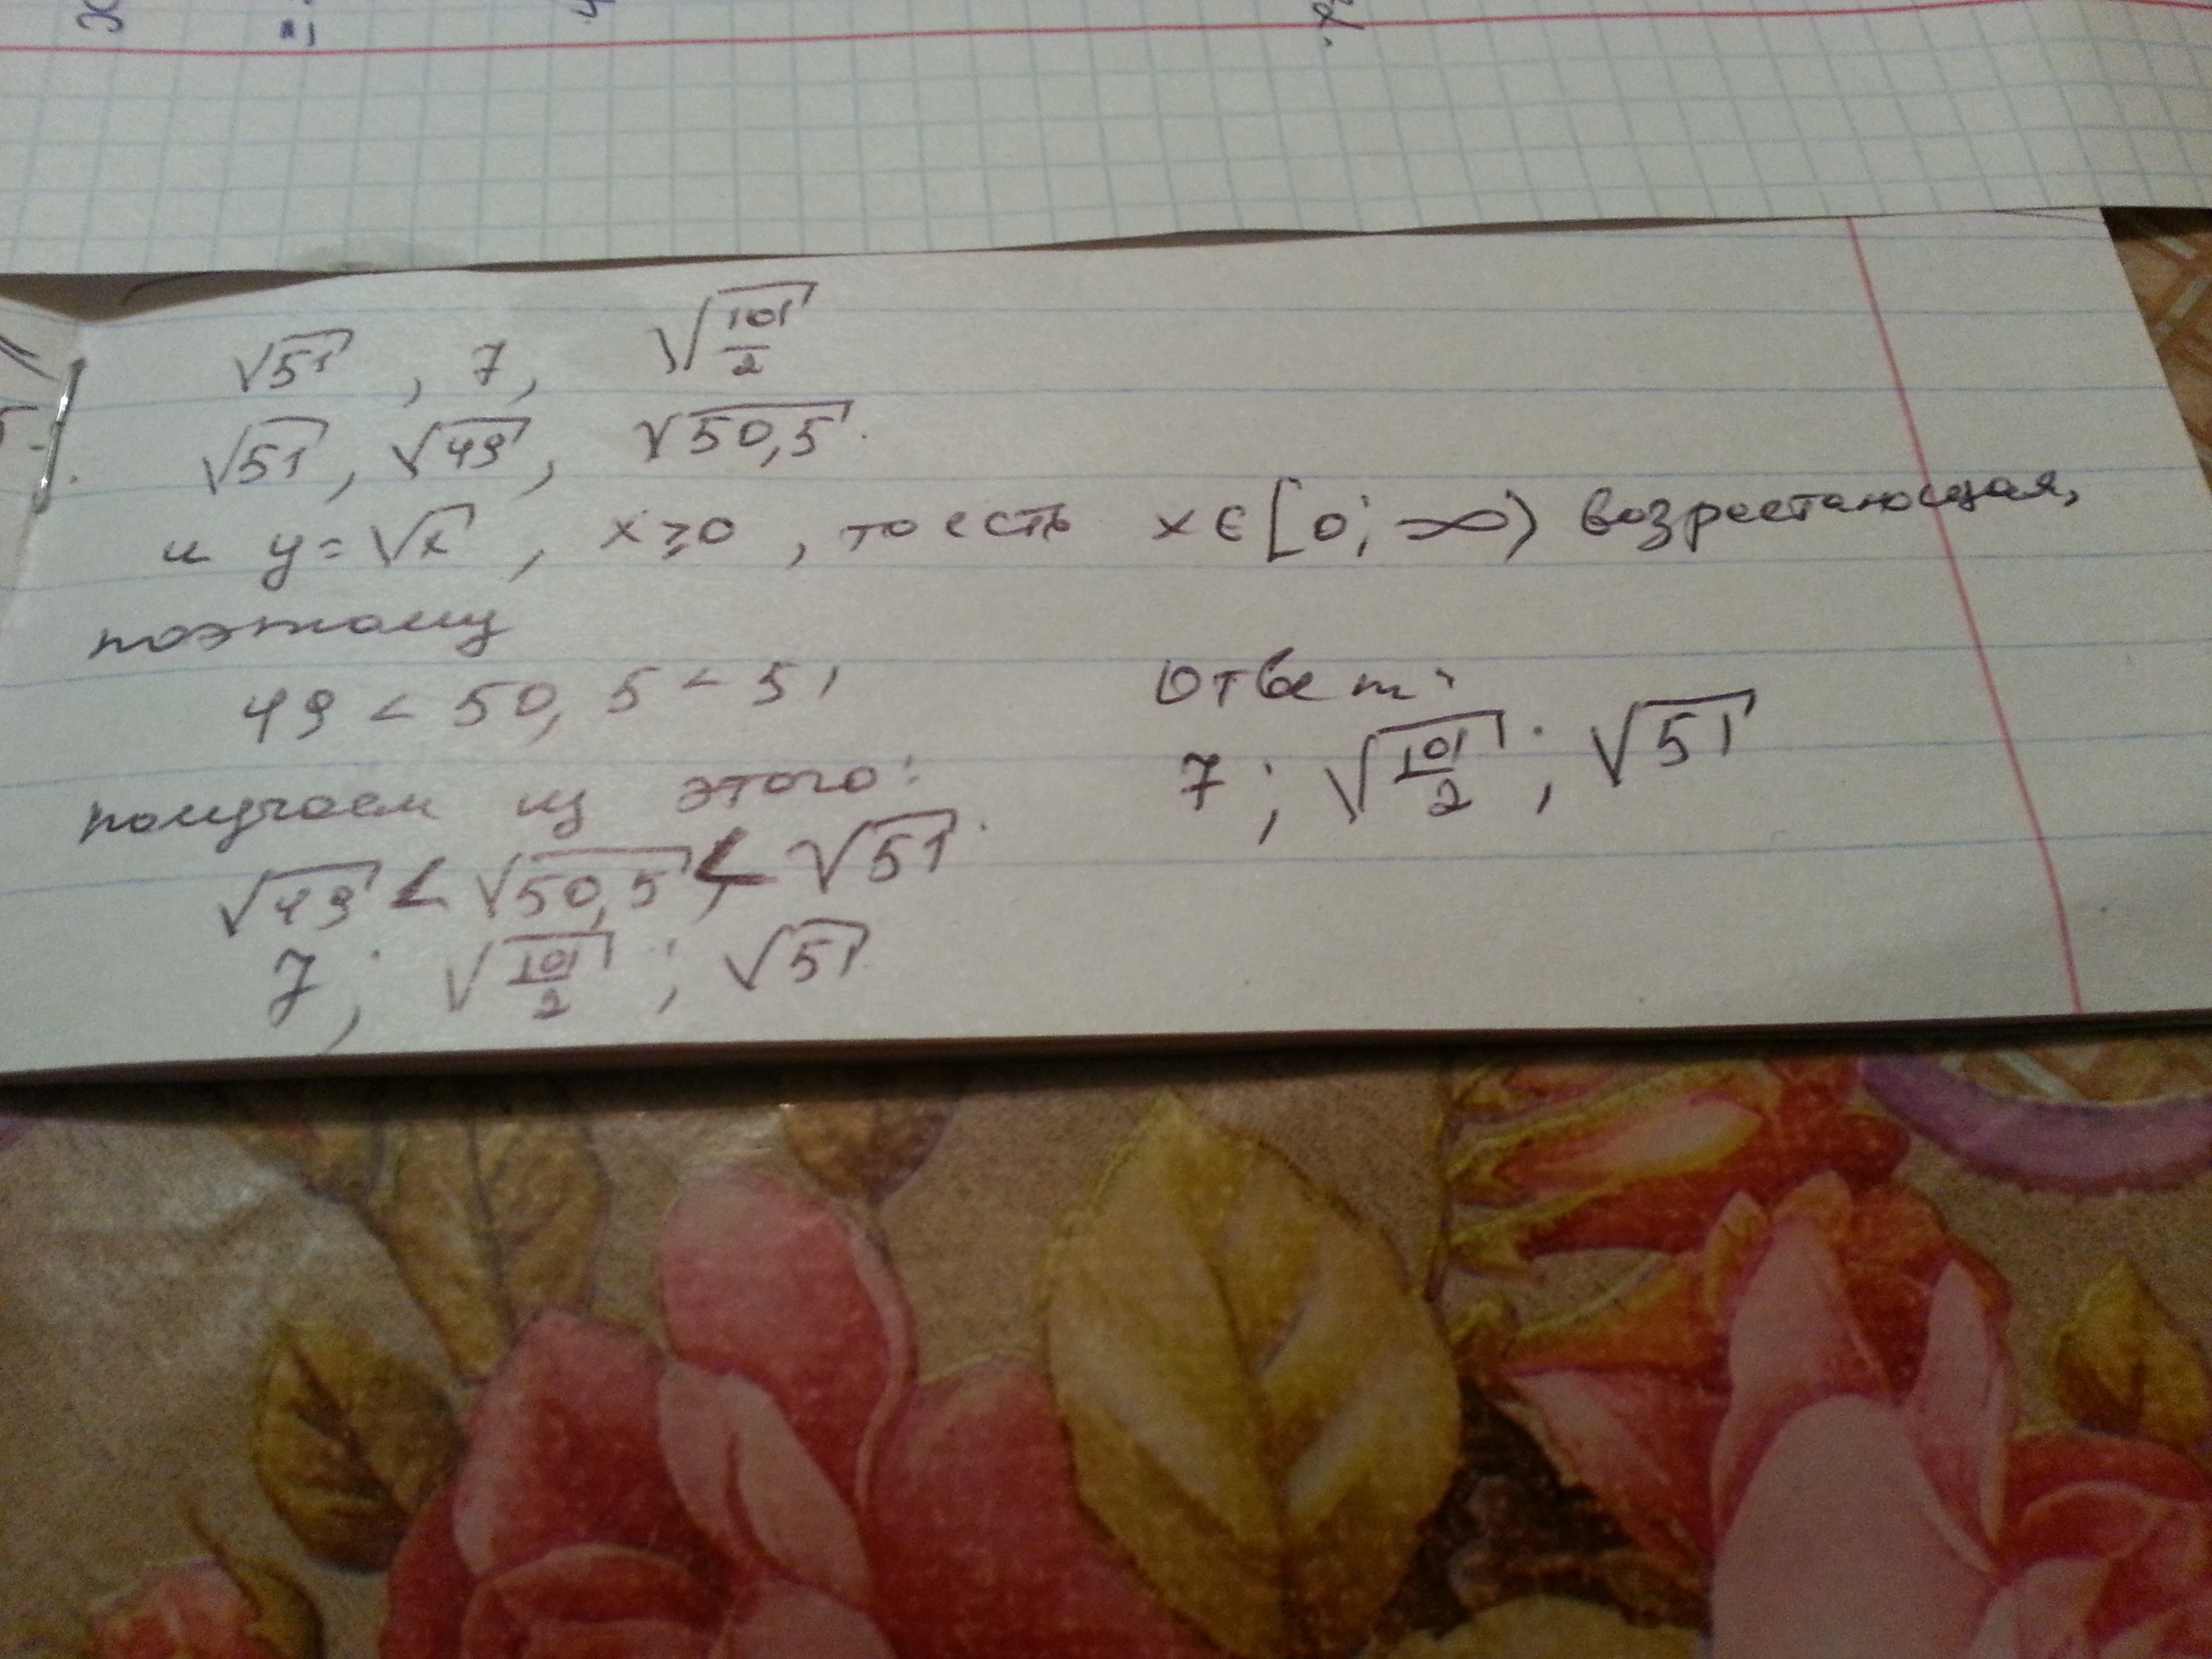 √51, 7, √(101/2)
√51, √49, √50,5.
и y=√x, x≥0, то есть x∈[0; ∞) возрастающая,
поэтому
49 < 50,5 < 51
получаем из этого:
√49 < √50,5 < √51.
7; √(101/2); √51
Ответ:
7; √(101/2); √51